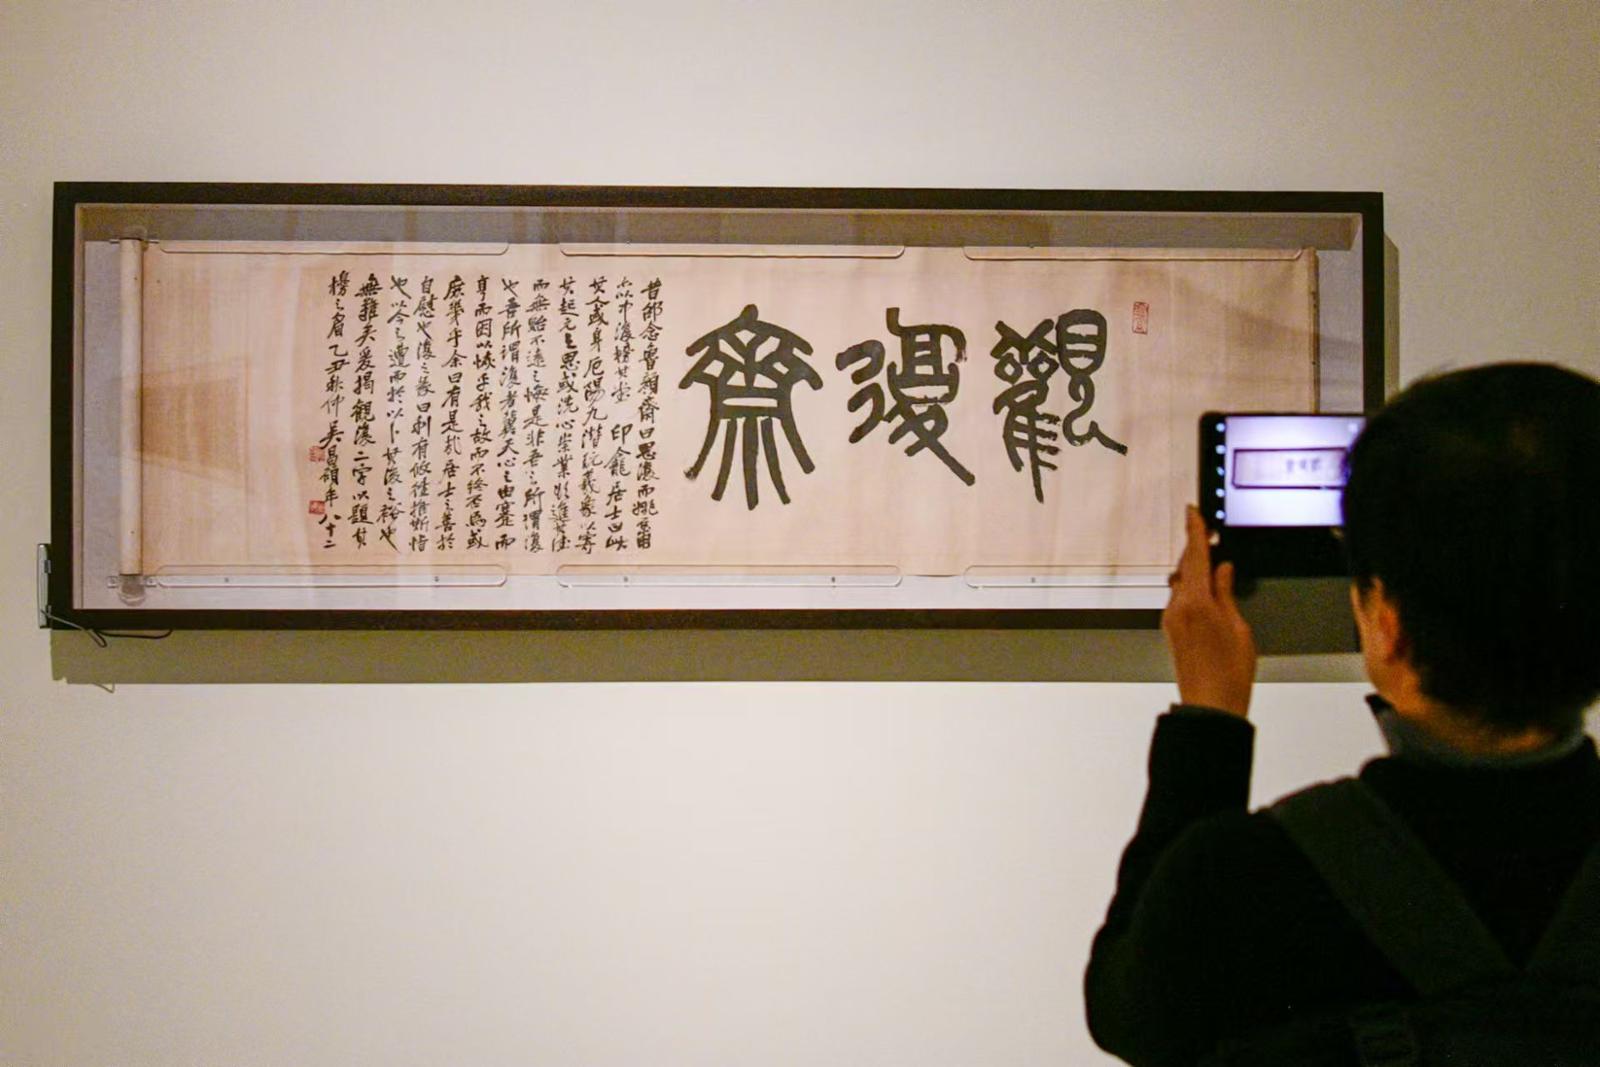 觀復齋
昔邵念魯顏齋曰思復而姚京甫
亦以中復榜其堂印龕居士曰此
其人或身厄陽九潛玩羲象以寄
其起元之思或洗心崇業以進其德
而無貽不遠之悔是非吾之所謂復
也吾所謂復者冀天心之由蹇而
亨而因以悔乎我之故而不終否焉或
庶幾乎余曰有是哉居士之善於
自慰也復之彖曰利有攸往推斯恉
也以今之遭而於以卜其復之裕也
無難矣爰揭觀復二字以題其
榜之眉乙丑秋仲吳昌碩年八十二